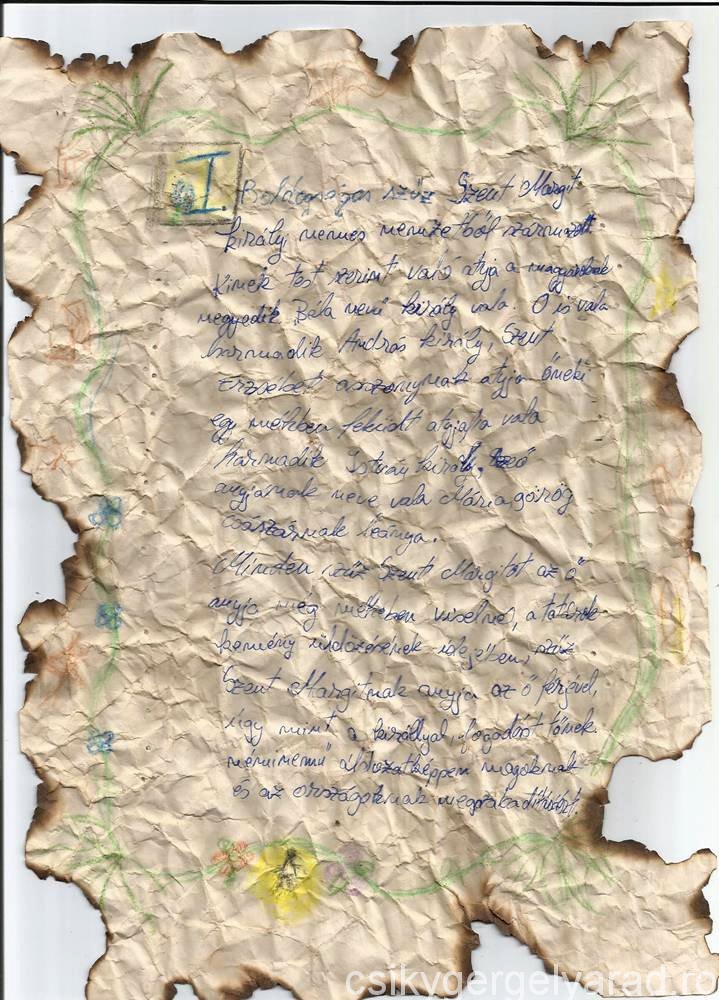 I. Boldogságos szűz Szent Margit
királyi nemes nemzetből származott
Kinek test szerint való atyja a magyaroknak
negyedik Béla nevű király vala. Ő is vala
harmadik András király, Szent
Erzsébet asszonynak atyja őneki
egy méhben feküdt atyjafia vala
harmadik István király,
anyjának neve vala Mária, görög
császárnak leánya.
Minden szűz Szent Margitot az ő
anyja még méhében viselné, a tatárok
kemény üldözésének idejében, szűz
Szent Margitnak anyja az ő férjével,
úgy mint a királlyal, fogadást tőnek
néminemű áldozatképpen magoknak
és az országoknak megszabadításáért.
csikygergelyarad.ro